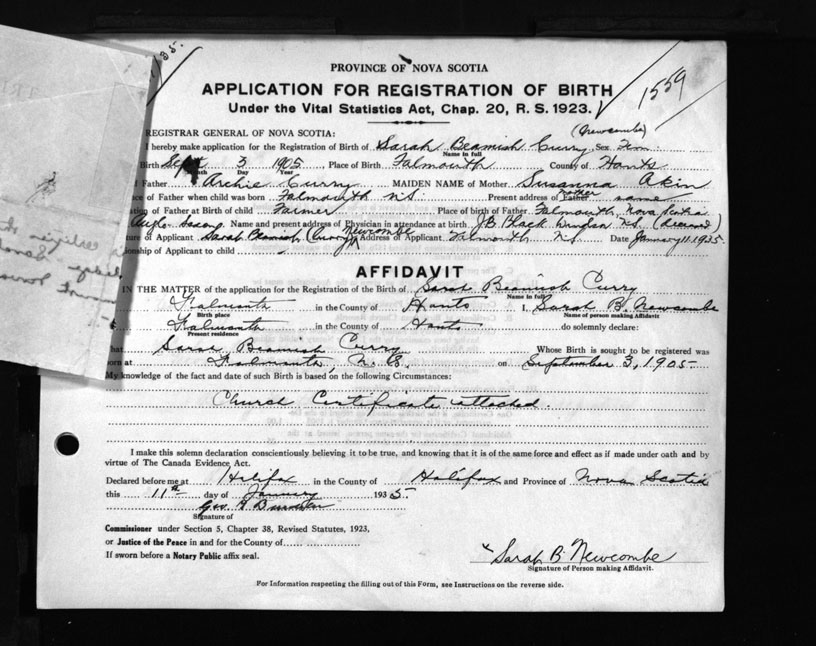 PROVINCE OF NOVA SCOTIA
APPLICATION FOR REGISTRATION OF BIRTH
Under the Vital Statistics Act, Chap. 20, R. S. 1923.
1559
REGISTRAR GENERAL OF NOVA SCOTIA:
(Newcombe)
I hereby make application for the Registration of Birth of Sarah Beamish Curry Sex Fem
Name in full
Birth Sept 3 1905 Place of Birth Falmouth County of Hants
Day Year
Father Archie Curry MAIDEN NAME of Mother Susanna Akin
of Father when child was born Falmouth N.S. Present address of Father Mother same
of Father at Birth of child Farmer Place of birth of Father Falmouth, Nova Scotia
Name and present address of Physician in attendance at birth J.B. Black Windsor N.S. (deceased)
of Applicant Sarah Beamish (Curry) Newcombe Address of Applicant Falmouth N.S. Date January 11. 1935
ionship of Applicant to child
AFFIDAVIT
IN THE MATTER of the application for the Registration of the Birth of Sarah Beamish Curry
Name in full
Falmouth in the County of Hants I, Sarah B. Newcombe
Birth place Name of person making Affidavit
Falmouth in the County of Hants do solemnly declare:
Present residence
Sarah Beamish Curry Whose Birth is sought to be registered was
born at Falmouth, N.S. on September 3, 1905
My knowledge of the fact and date of such Birth is based on the following Circumstances:
Church Certificate attached.
I make this solemn declaration conscientiously believing it to be true, and knowing that it is of the same force and effect as if made under oath and by
virtue of The Canada Evidence Act.
Declared before me at Halifax in the County of Halifax and Province of Nova Scotia
this 11th day of January 1935.
Geo. A
Signature of
Commissioner under Section 5, Chapter 38, Revised Statutes, 1923,
or Justice of the Peace in and for the County of
If sworn before a Notary Public affix seal.
x Sarah B. Newcombe
Signature of Person making Affidavit.
For Information respecting the filling out of this Form, see Instructions on the reverse side.